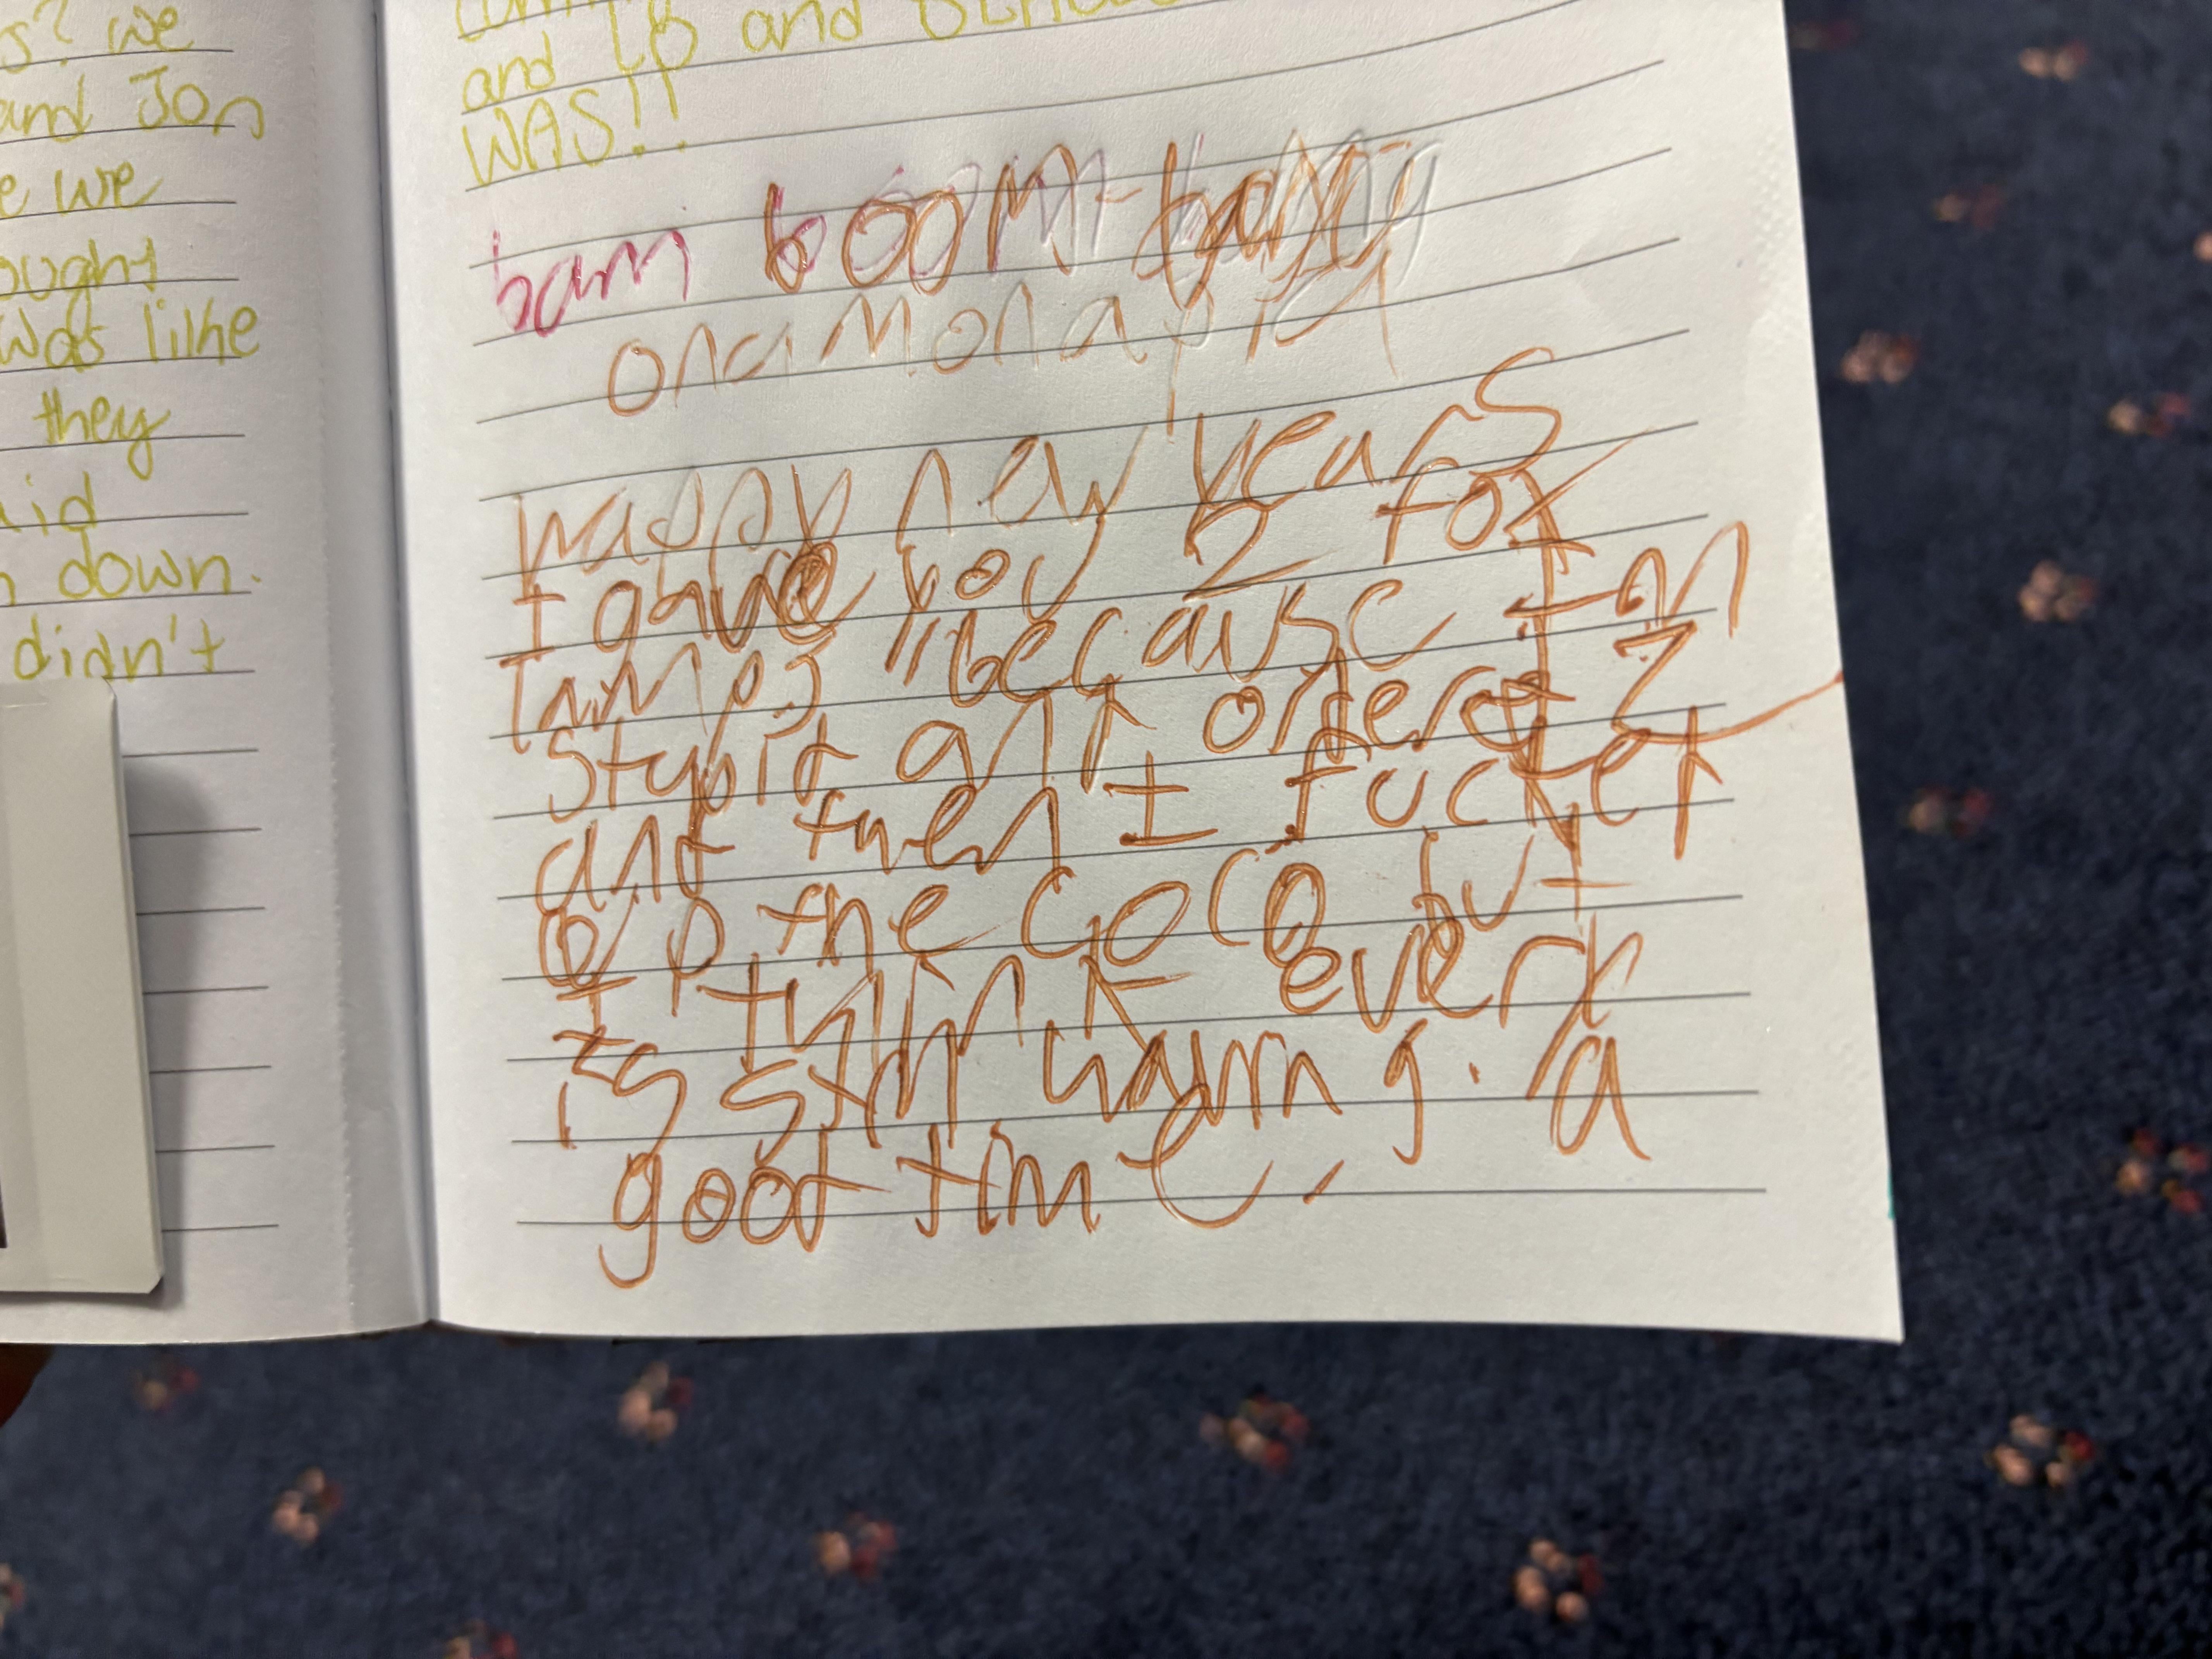 s? we
and Jon
e we
ought
was like
they
aid
down.
didn't
and LB and
WAS!!
bam boom-bang
onamonapia
happy new years
I gave you 2 fox
lamps because Im
stupid and ordered 2
and then I fucked
up the Goro but
I think every
is still having a
good time.